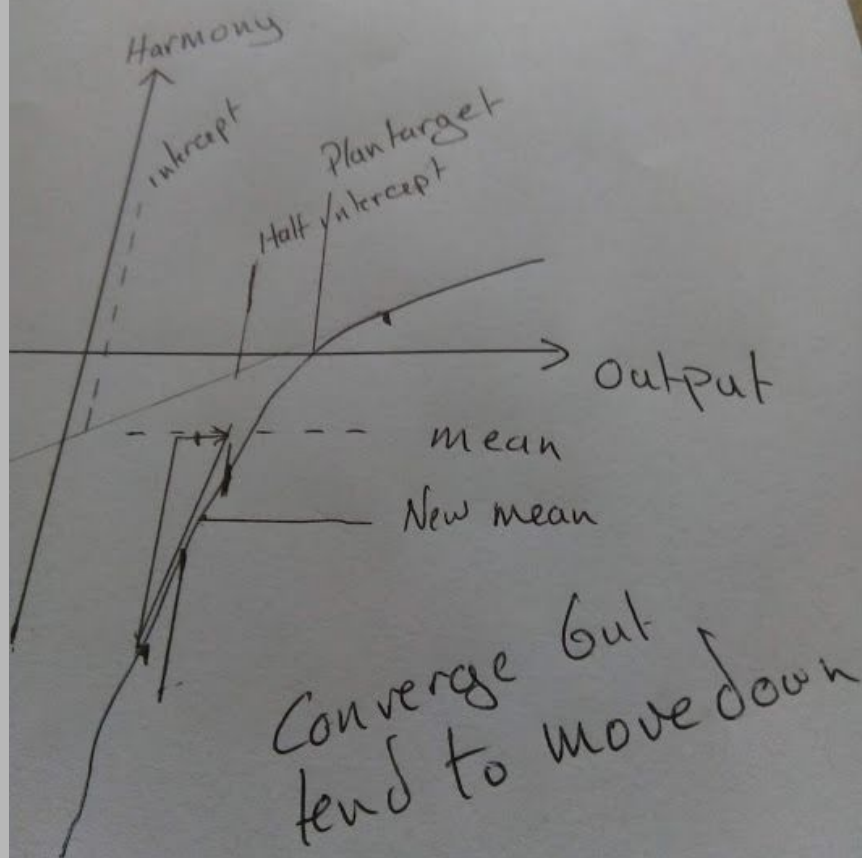 Harmony
intercept
Plan target
Half intercept
Output
mean
New mean
Converge but
tend to move down